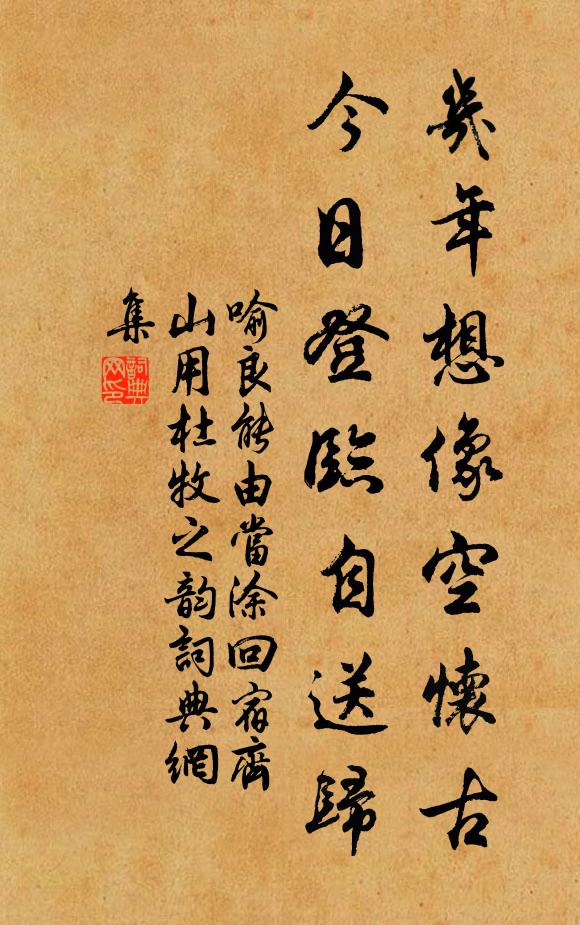 幾年想像空懷古
今日登臨自送歸
喻良能由當涂回宿齊
山用杜牧之韵詞典網
集
詞典
网印